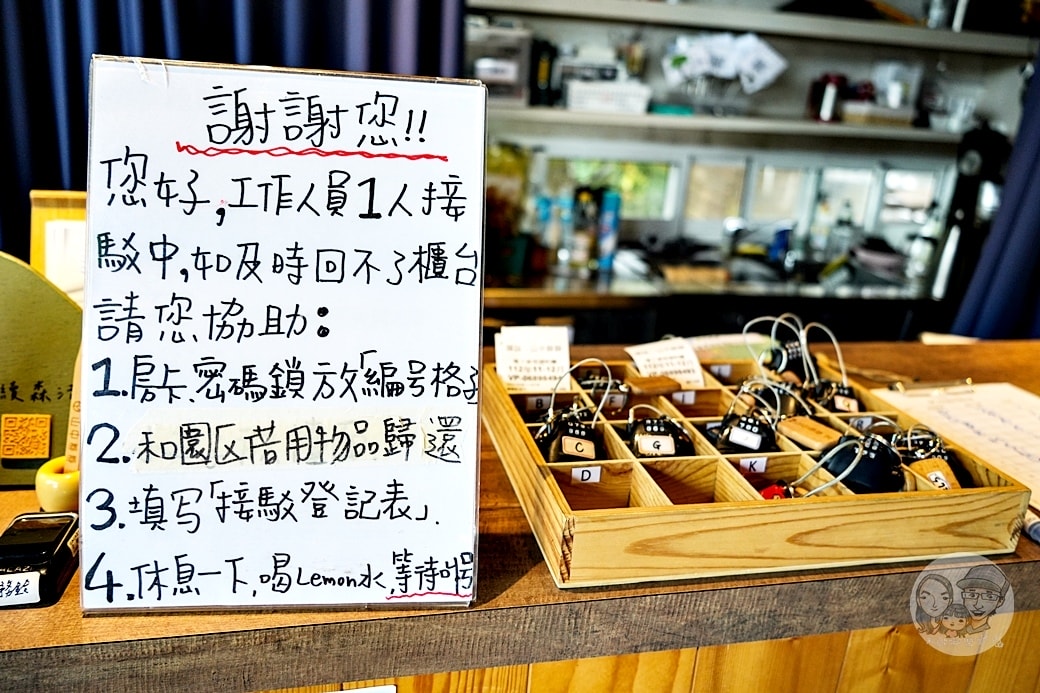 謝謝您!!
您好,工作人員1人接
駁中,如及時回不了櫃台
請您協助:
1.房卡、密碼鎖放「編号格子
2.和園区借用物品歸還
3.填写「接駁登記表」.
4.休息一下,喝Lemon水,等待叫号
B
F
I
C
G
D
K